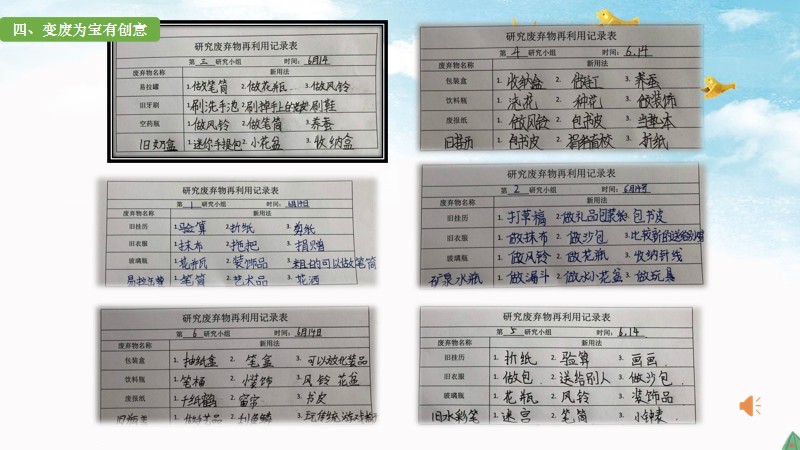 四、变废为宝有创意
研究废弃物再利用记录表
第 三 研究小组 时间：6月14
废弃物名称 新用法
易拉罐 1.做笔筒 2.做花瓶 3.做风铃
旧牙刷 1.刷洗手池 2.刷 3.刷鞋
空药瓶 1.做风铃 2.做笔筒 3.养蚕
旧奶盒 1.迷你手提包 2.小花盆 3.收纳盒
研究废弃物再利用记录表
第 4 研究小组 时间：6.14
废弃物名称 新用法
包装盒 1.收纳盒 2. 3.养蚕
饮料瓶 1.浇花 2.种花 3.做装饰
废报纸 1.做风铃 2.包书皮 3.当垫本
旧挂历 1.包书皮 2. 3.折纸
研究废弃物再利用记录表
第 1 研究小组 时间：6月14日
废弃物名称 新用法
旧挂历 1.验算 2.折纸 3.剪纸
旧衣服 1.抹布 2.拖把 3.捐赠
玻璃瓶 1.花瓶 2.装饰品 3.粗的可以做笔筒
1.笔筒 2.艺术品 3.花洒
研究废弃物再利用记录表
第 2 研究小组 时间：6月14号
废弃物名称 新用法
旧挂历 1.打草稿 2.做礼品包装纸 3.包书皮
旧衣服 1.做抹布 2.做沙包 3.比较新的送给
玻璃瓶 1.做风铃 2.做花瓶 3.收纳针线
矿泉水瓶 1.做漏斗 2.做水小花盆 3.做玩具
研究废弃物再利用记录表
第 6 研究小组 时间：6月14日
废弃物名称 新用法
包装盒 1.抽纸盒 2.笔盒 3.可以放化妆品
饮料瓶 1.笔桶 2.饰 3.风铃 花盆
废报纸 1.千纸鹤 2.窗帘 3.书皮
研究废弃物再利用记录表
第 5 研究小组 时间：6.14
废弃物名称 新用法
旧挂历 1.折纸 2.验算 3.画画
旧衣服 1.做包 2.送给别人 3.做沙包
玻璃瓶 1.花瓶 2.风铃 3.装饰品
旧水彩笔 1.迷宫 2.笔筒 3.小钟表